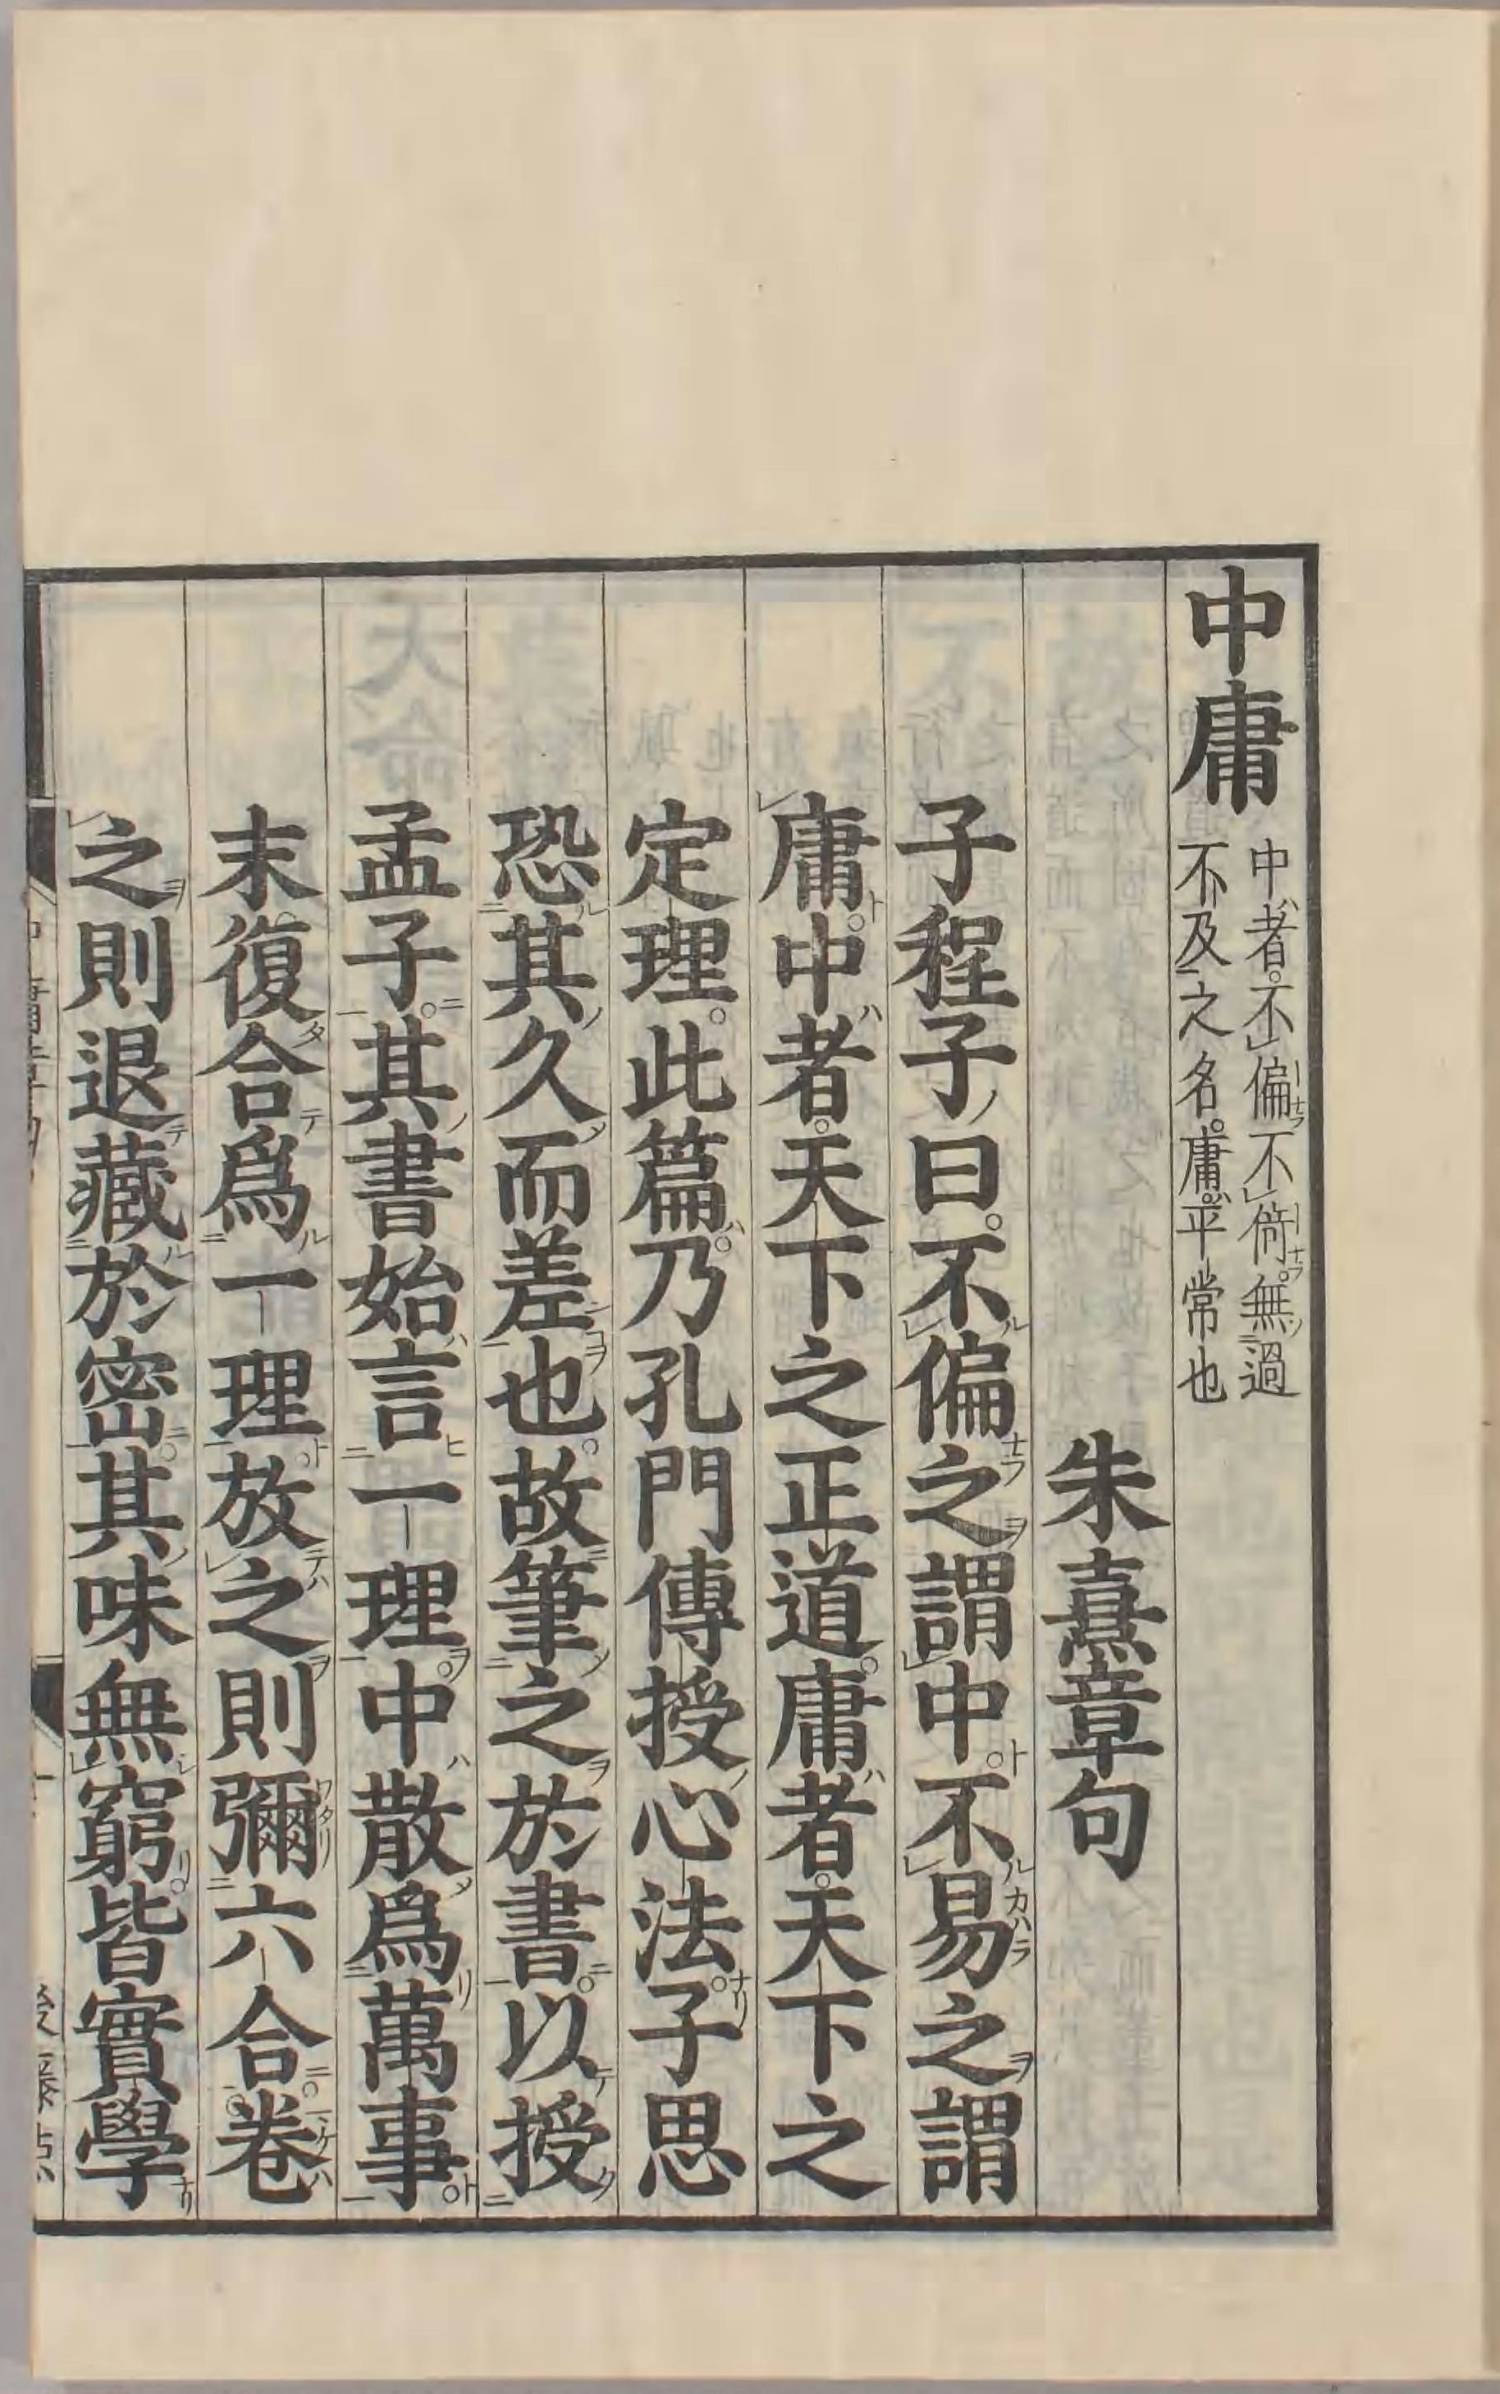 中庸
中者不偏不倚無過
不及之名庸平常也
朱熹章句
子程子曰不偏之謂中不易之謂
庸中者天下之正道庸者天下之
定理此篇乃孔門傳授心法子思
恐其久而差也故筆之於書以授
孟子其書始言一理中散爲萬事
末復合爲一理放之則彌六合卷
之則退藏於密其味無窮皆實學